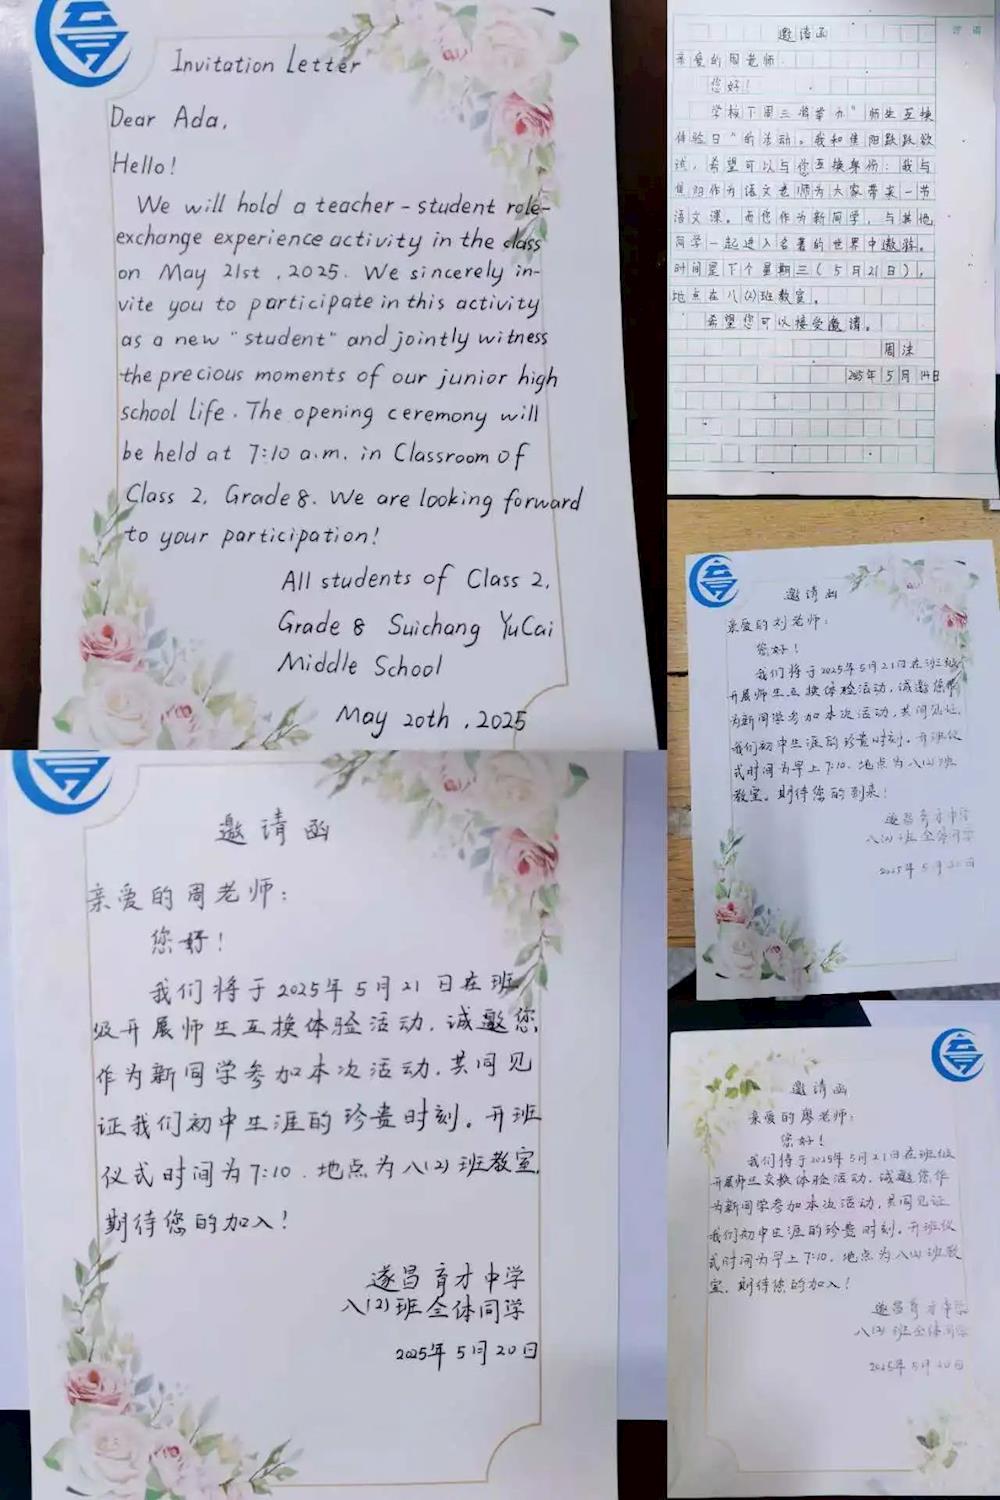 Invitation Letter
Dear Ada,
Hello!
We will hold a teacher-student role-
exchange experience activity in the class
on May 21st, 2025. We sincerely in-
vite you to participate in this activity
as a new "student" and jointly witness
the precious moments of our junior high
school life. The opening ceremony will
be held at 7:10 a.m. in Classroom of
Class 2, Grade 8. We are looking forward
to your participation!
All students of Class 2,
Grade 8 Suichang YuCai
Middle School
May 20th, 2025
邀请函
亲爱的周老师:
您好!
学校下周三将举办"师生互换
体验日"的活动。我和焦阳跃跃欲
试,希望可以与您互换身份:我与
焦阳作为语文老师为大家带来一节
语文课。而您作为新同学,与其他
同学一起进入名著的世界中遨游。
时间是下个星期三(5月21日),
地点在八(2)班教室。
希望您可以接受邀请。
周沫
2025年5月14日
邀请函
亲爱的刘老师:
您好!
我们将于2025年5月21日在班级
开展师生互换体验活动,诚邀您作
为新同学参加本次活动,共同见证
我们初中生涯的珍贵时刻。开班仪
式时间为早上7:10.地点为八(2)班
教室。期待您的到来!
遂昌育才中学
八(2)班全体同学
2025年5月20日
邀请函
亲爱的周老师:
您好!
我们将于2025年5月21日在班
级开展师生互换体验活动.诚邀您
作为新同学参加本次活动.共同见
证我们初中生涯的珍贵时刻。开班
仪式时间为7:10.地点为八(2)班教室.
期待您的加入!
遂昌育才中学
八(2)班全体同学
2025年5月20日
邀请函
亲爱的廖老师:
您好!
我们将于2025年5月21日在班级
开展师生交换体验活动.诚邀您作
为新同学参加本次活动,共同见证
我们初中生涯的珍贵时刻.开班仪
式时间为早上7:10.地点为八(2)班教
室.期待您的加入!
遂昌育才中学
八(2)班全体同学
2025年5月20日